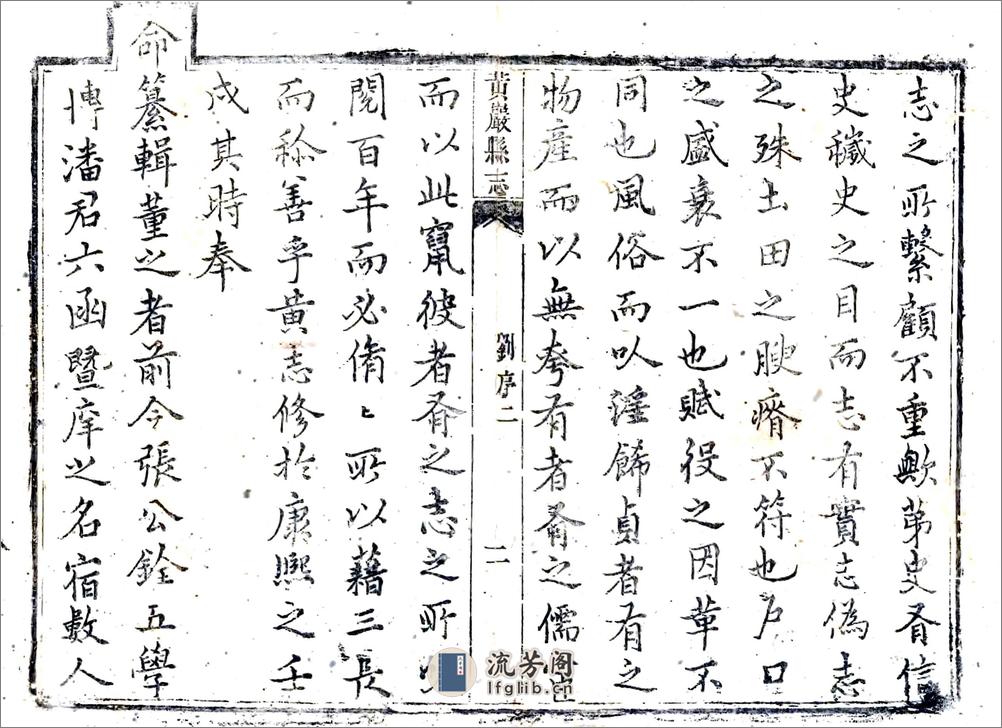 志之所繫顧不重歟第史有信
史穢史之目而志有實志偽志
之殊土田之腴瘠不符也戶口
之盛衰不一也賦役之因革不
同也風俗而以淫餙貞者有之
物產而以無夸有者有之儒
黃巖縣志
劉序二
二
而以此竄彼者有之志之所
閱百年而必脩〻所以藉三長
而稱善乎黃志修於康熙之壬
戌其時奉
命纂輯董之者前令張公銓五學
博潘君六函暨庠之名宿數人
流芳阁
lfglib.cn